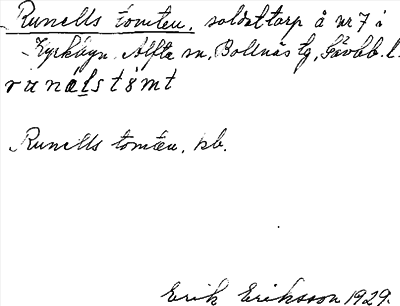 Runells tomten, soldattorp å nr 7 i
Kyrkbyn, Alfta sn, Bollnäs tg, Gävleb. l.
runälstömt
Runells tomten, kb.
Erik Eriksson 1929.